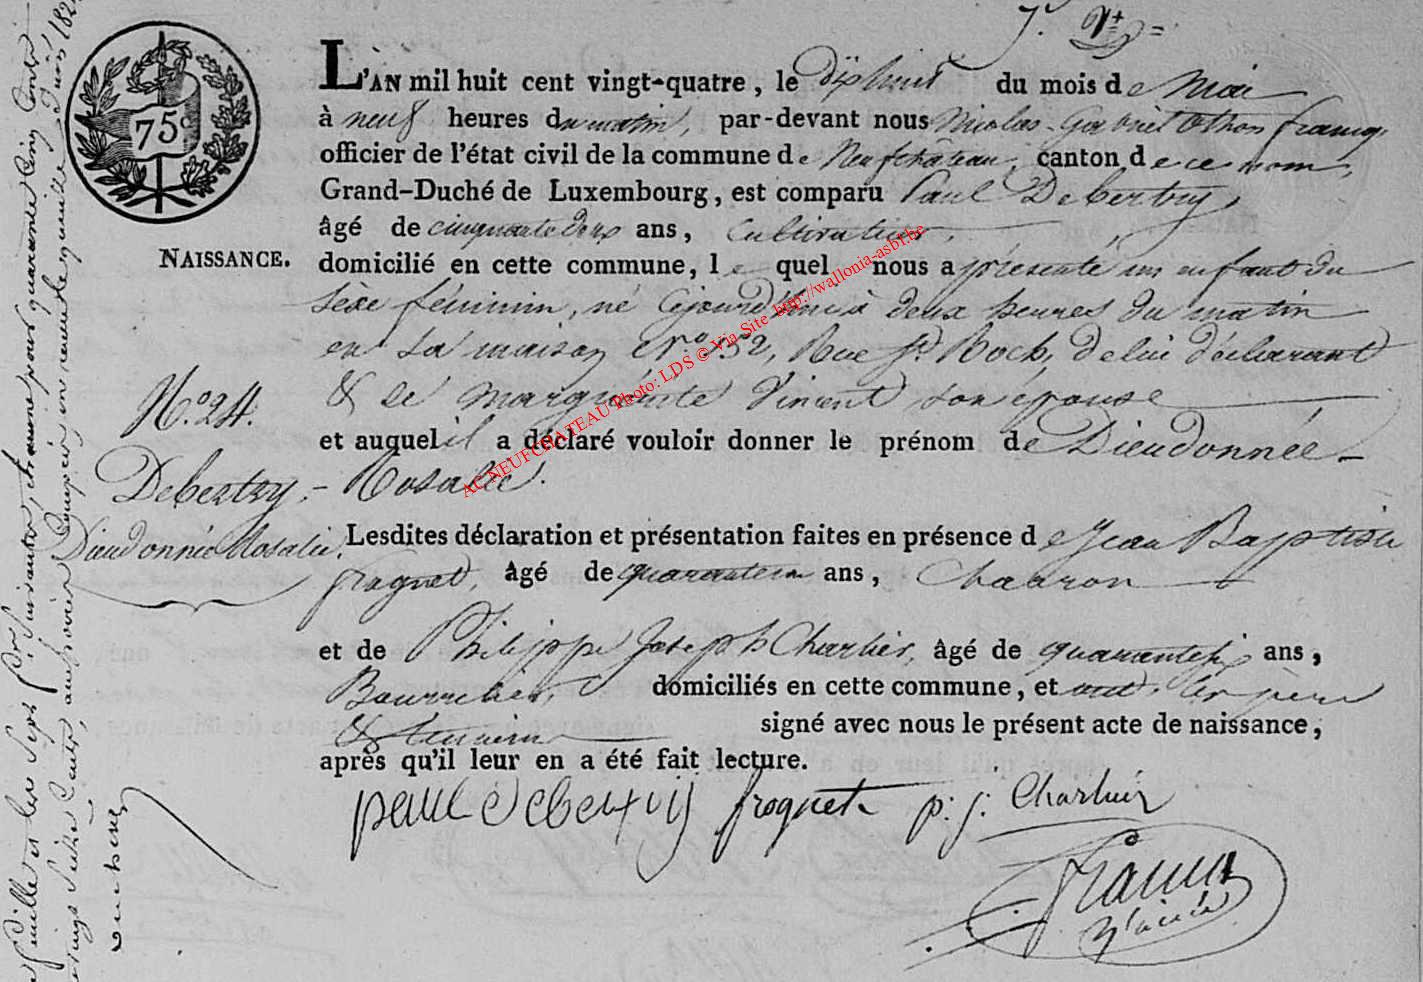 75c
NAISSANCE.
L'AN mil huit cent vingt-quatre, le dixhuit du mois de Mai
à neuf heures du matin, par-devant nous Nicolas-Gabriel Othon francq,
officier de l'état civil de la commune de Neufchâteau, canton de ce nom,
Grand-Duché de Luxembourg, est comparu Paul Debertry,
âgé de cinquante deux ans, Cultivateur,
domicilié en cette commune, le quel nous a présenté un enfant du
sèxe féminin, né cejourd'hui à deux heures du matin
en sa maison N.º 152, Rue St Roch, de lui déclarant
& de Marguerite Vincent son épouse
et auquel il a déclaré vouloir donner le prénom de Dieudonnée
Rosalie.
N.º 24.
Debertry,
Dieudonnée Rosalie.
Lesdites déclaration et présentation faites en présence de Jean Baptiste
froguet, âgé de ans, Charron
et de Philippe Joseph Charlier, âgé de ans,
Bourrelier, domiciliés en cette commune, et ont, les père
& témoins
signé avec nous le présent acte de naissance,
après qu'il leur en a été fait lecture.
paul debertry froguet p: j: Charlier
Francq
AC NEUFCHATEAU Photo: LDS © Via Site http://wallonia-asbl.be